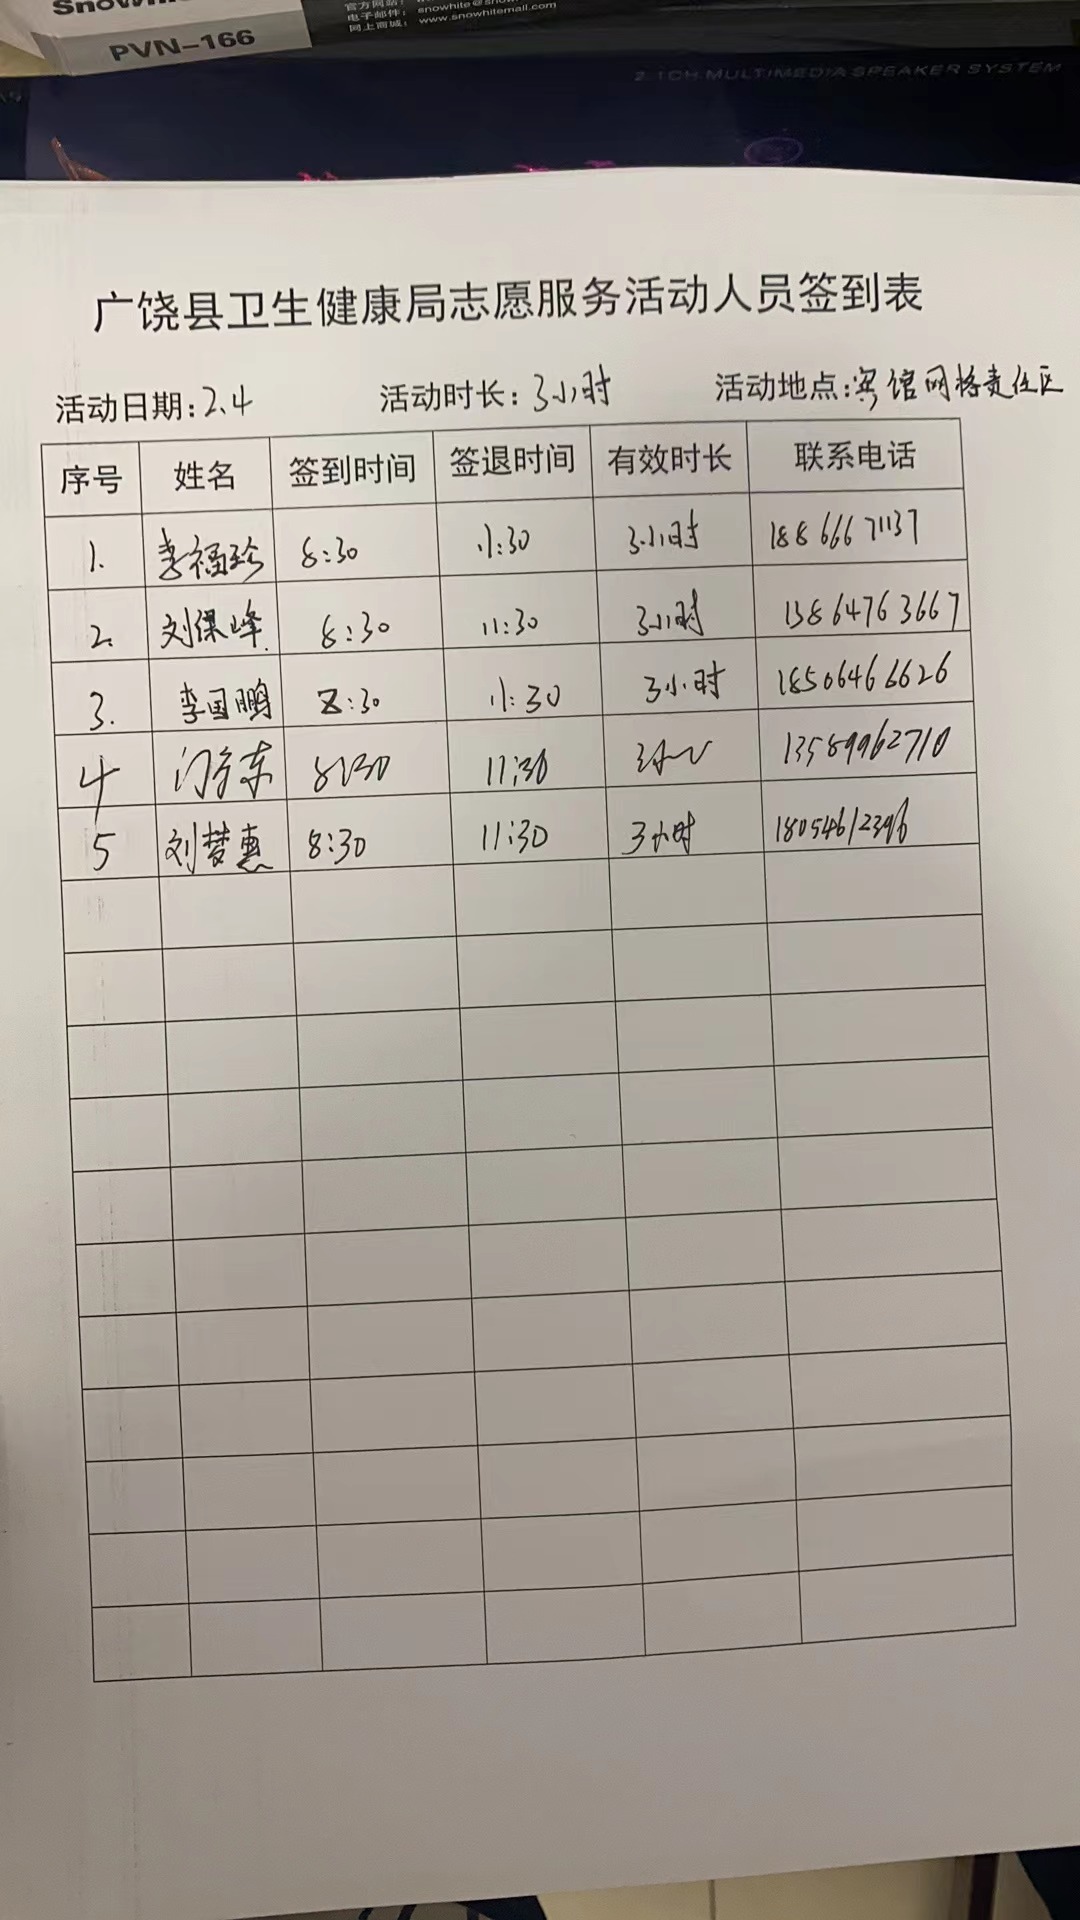 PVN-166
官方网站:
电子邮件: snowhite@
网上商城: www.snowhitemall.com
2.1CH MULTIMEDIA SPEAKER SYSTEM
广饶县卫生健康局志愿服务活动人员签到表
活动日期:2.4 活动时长:3小时 活动地点:宾馆网格责任区
序号 姓名 签到时间 签退时间 有效时长 联系电话
1. 李福珍 8:30 11:30 3小时 188 6667 1137
2. 刘保峰 8:30 11:30 3小时 13864763667
3. 李国鹏 8:30 11:30 3小时 18506466626
4 门东 8:30 11:30 3小时 13589962710
5 刘梦惠 8:30 11:30 3小时 18054612396